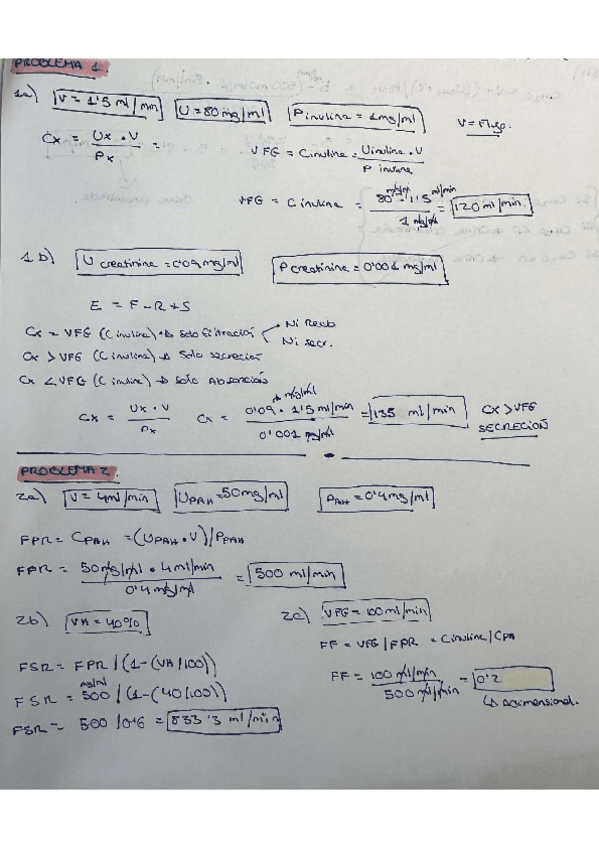 PROBLEMA 1.
1a) V = 1'5 ml/min U = 80 mg/ml P inulina = 1 mg/ml V = Flujo.
Cx = Ux · V / Px =
VFG = C inulina = U inulina · V / P inulina
VFG = C inulina = 80 mg/ml · 1'5 ml/min / 1 mg/ml = 120 ml/min
1b) U creatinina = 0'09 mg/ml P creatinina = 0'001 mg/ml
E = F - R + S
Cx = VFG (C inulina) → Solo filtración Ni Reab
Ni secr.
Cx > VFG (C inulina) → Solo secreción
Cx < VFG (C inulina) → Solo Absorción
Cx = Ux · V / Px Cx = 0'09 mg/ml · 1'5 ml/min / 0'001 mg/ml = 135 ml/min Cx > VFG
SECRECIÓN
PROBLEMA 2.
2a) V = 4 ml/min U PAH = 50 mg/ml P PAH = 0'4 mg/ml
FPR = C PAH = (U PAH · V) / P PAH
FPR = 50 mg/ml · 4 ml/min / 0'4 mg/ml = 500 ml/min
2b) VH = 40% 2c) VFG = 100 ml/min
FF = VFG / FPR = C inulina / C PA
FSR = FPR / (1 - (VH / 100))
FF = 100 ml/min / 500 ml/min = 0'2
FSR = 500 / (1 - (40/100))
↳ Adimensional.
FSR = 500 / 0'6 = 833'3 ml/min